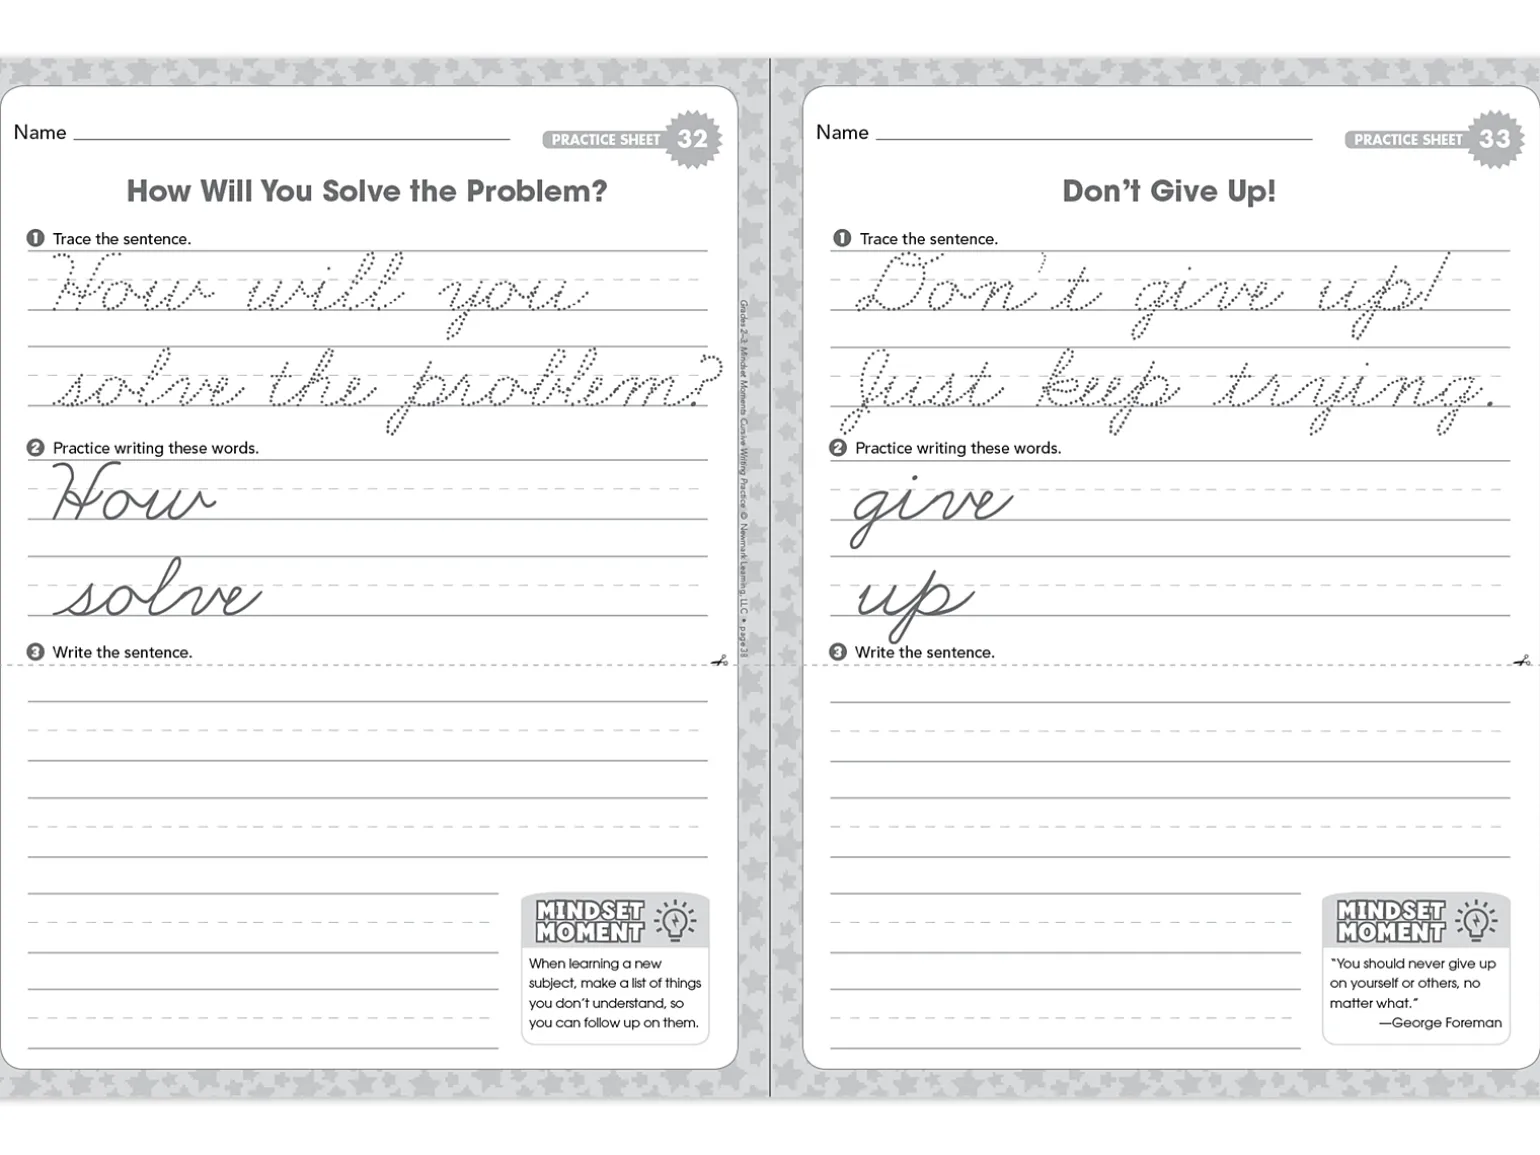 Name
PRACTICE SHEET 32
How Will You Solve the Problem?
1 Trace the sentence.
How will you
solve the problem?
2 Practice writing these words.
How
solve
3 Write the sentence.
MINDSET
MOMENT
When learning a new
subject, make a list of things
you don't understand, so
you can follow up on them.
Grades 2–3: Mindset Moments Cursive Writing Practice © Newmark Learning, LLC • page 38
Name
PRACTICE SHEET 33
Don't Give Up!
1 Trace the sentence.
Don't give up!
Just keep trying.
2 Practice writing these words.
give
up
3 Write the sentence.
MINDSET
MOMENT
"You should never give up
on yourself or others, no
matter what."
—George Foreman